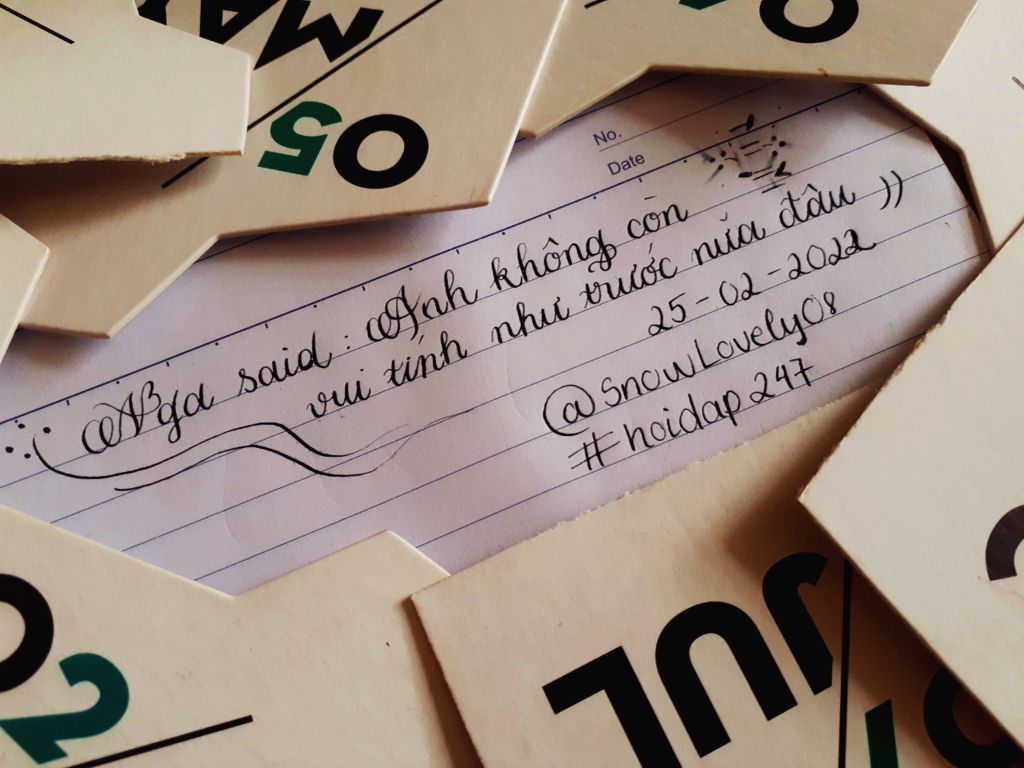 MA
05
0
No.
Date
Nga said : Anh không còn
vui tính như trước nữa đâu ))
25-02-2022
@SnowLovely08
#hoidap247
02
JUL